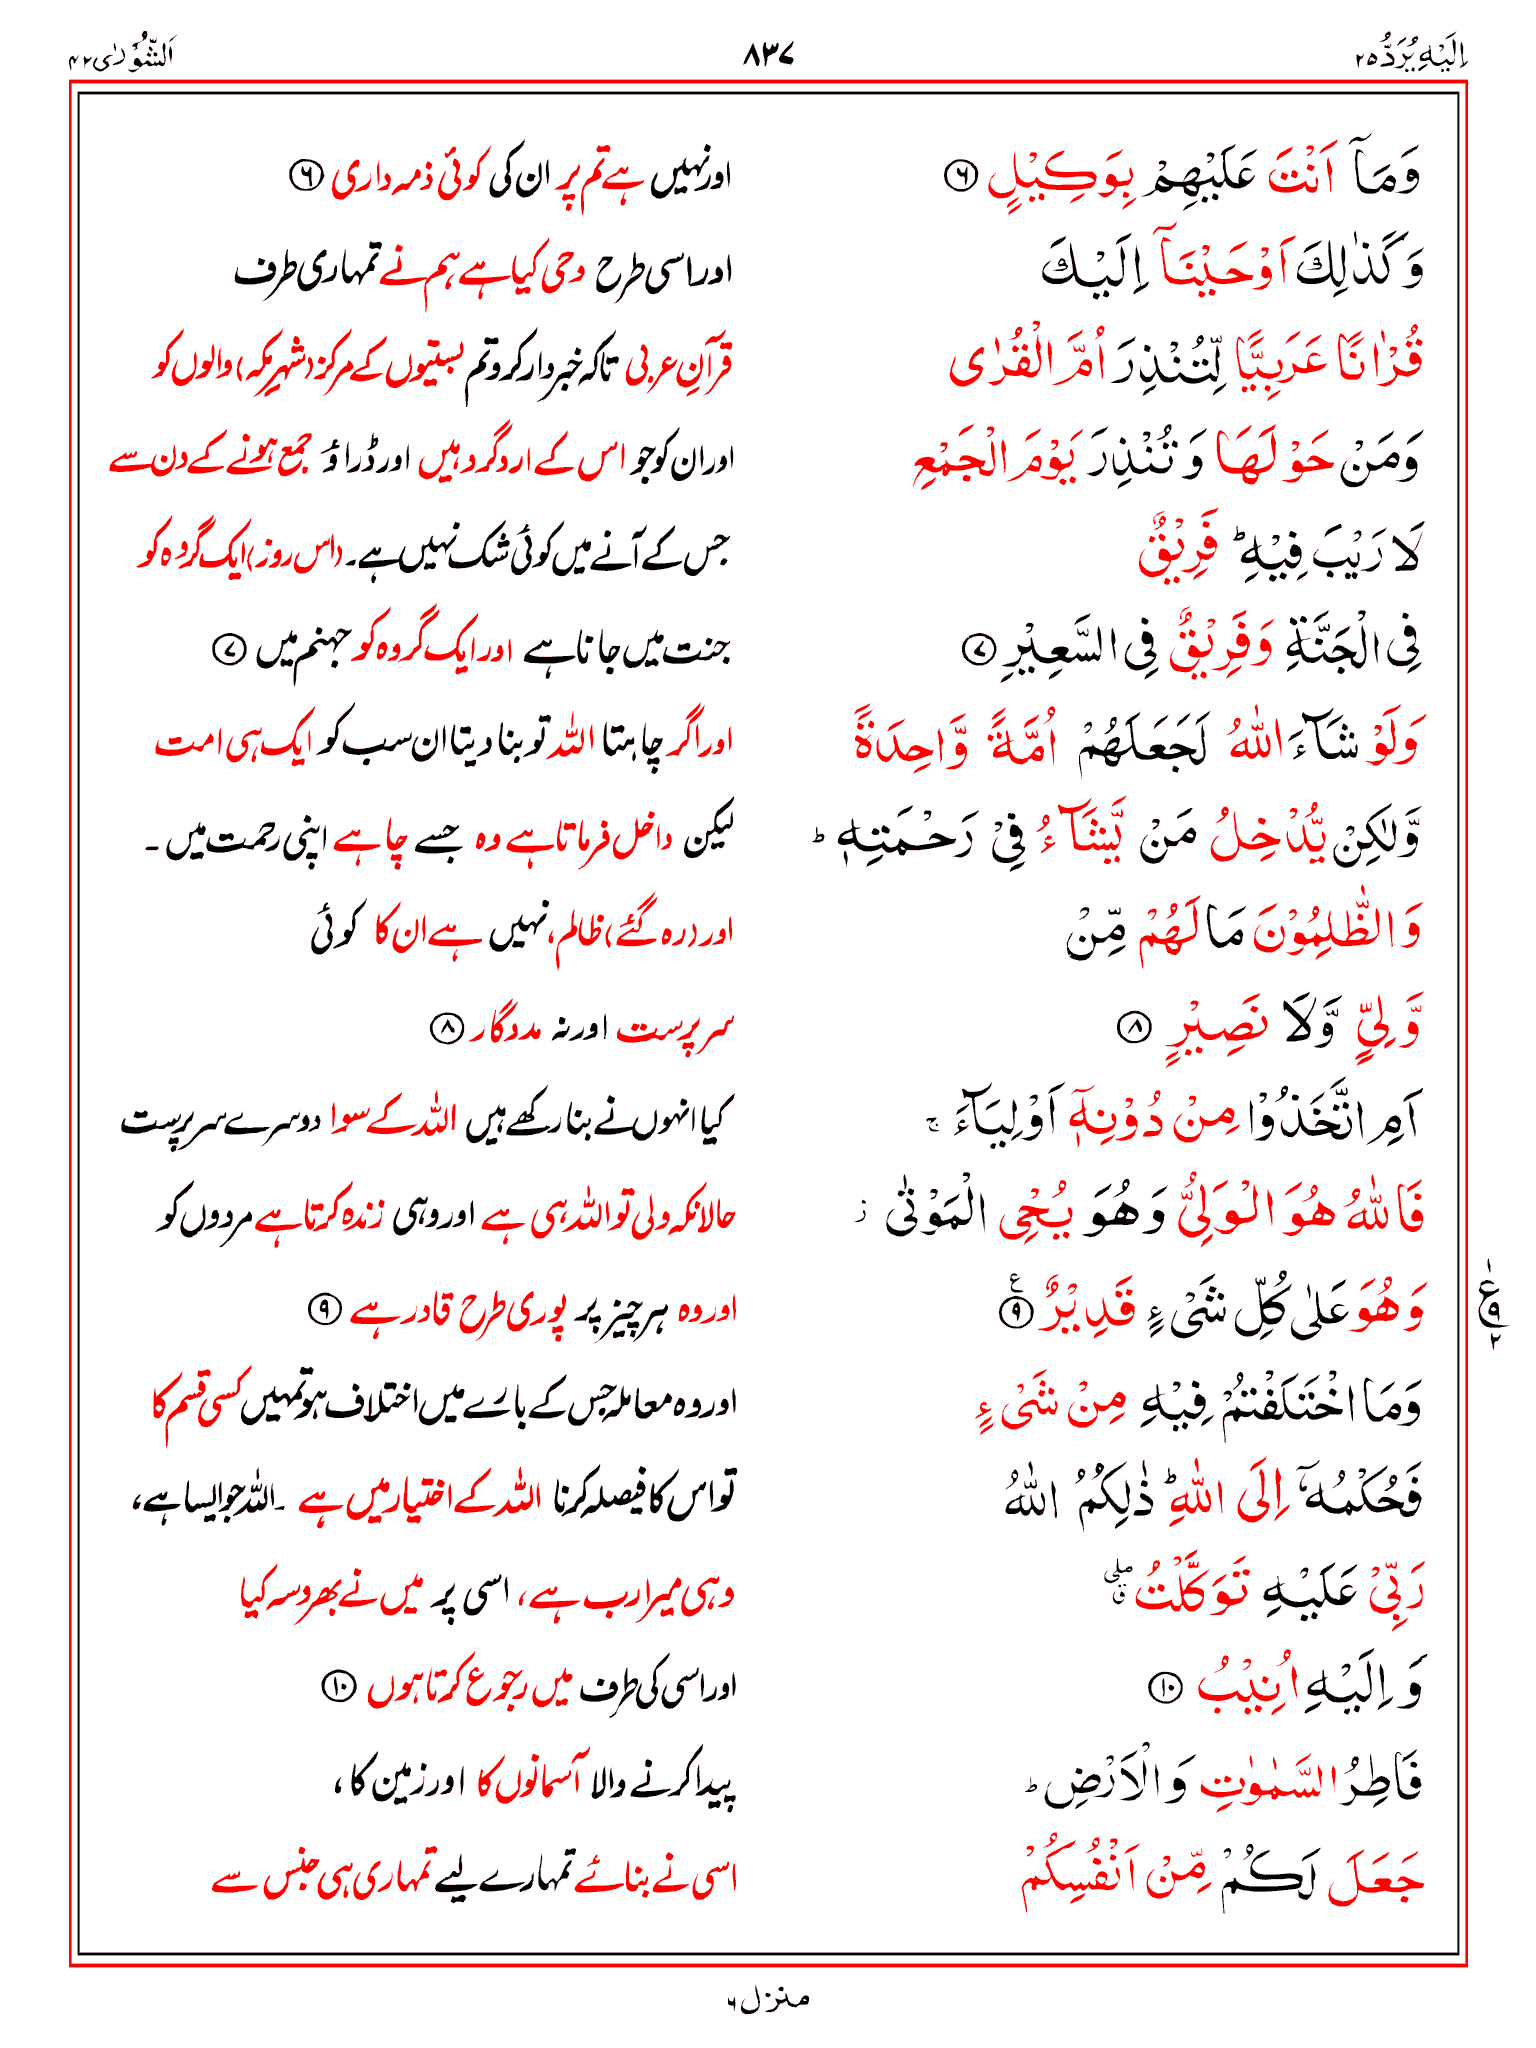 اِلَیْهِ یُرَدُّ ۲۵ ۸۳۷ اَلشُّوْرٰی ۴۲
وَمَاۤ اَنْتَ عَلَیْهِمْ بِوَكِیْلٍ ۶ اور نہیں ہے تم پر ان کی کوئی ذمہ داری ۶
وَكَذٰلِكَ اَوْحَیْنَاۤ اِلَیْكَ اور اسی طرح وحی کیا ہے ہم نے تمہاری طرف
قُرْاٰنًا عَرَبِیًّا لِّتُنْذِرَ اُمَّ الْقُرٰی قرآنِ عربی تاکہ خبردار کرو تم بستیوں کے مرکز (شہرِ مکہ) والوں کو
وَمَنْ حَوْلَهَا وَتُنْذِرَ یَوْمَ الْجَمْعِ اور ان کو جو اس کے ارد گرد ہیں اور ڈراؤ جمع ہونے کے دن سے
لَا رَیْبَ فِیْهِ ؕ فَرِیْقٌ جس کے آنے میں کوئی شک نہیں ہے۔ (اس روز) ایک گروہ کو
فِی الْجَنَّةِ وَفَرِیْقٌ فِی السَّعِیْرِ ۷ جنت میں جانا ہے اور ایک گروہ کو جہنم میں ۷
وَلَوْ شَآءَ اللّٰهُ لَجَعَلَهُمْ اُمَّةً وَّاحِدَةً اور اگر چاہتا اللہ تو بنا دیتا ان سب کو ایک ہی امت
وَّلٰكِنْ یُّدْخِلُ مَنْ یَّشَآءُ فِیْ رَحْمَتِهٖ ؕ لیکن داخل فرماتا ہے وہ جسے چاہے اپنی رحمت میں ۔
وَالظّٰلِمُوْنَ مَا لَهُمْ مِّنْ اور (رہ گئے) ظالم، نہیں ہے ان کا کوئی
وَّلِیٍّ وَّلَا نَصِیْرٍ ۸ سرپرست اور نہ مددگار ۸
اَمِ اتَّخَذُوْا مِنْ دُوْنِهٖۤ اَوْلِیَآءَ ۚ کیا انہوں نے بنا رکھے ہیں اللہ کے سوا دوسرے سرپرست
فَاللّٰهُ هُوَ الْوَلِیُّ وَهُوَ یُحْیِ الْمَوْتٰی ؗ حالانکہ ولی تو اللہ ہی ہے اور وہی زندہ کرتا ہے مردوں کو
وَهُوَ عَلٰی كُلِّ شَیْءٍ قَدِیْرٌ ۹ ع اور وہ ہر چیز پر پوری طرح قادر ہے ۹
ع ۹ ۲
وَمَا اخْتَلَفْتُمْ فِیْهِ مِنْ شَیْءٍ اور وہ معاملہ جس کے بارے میں اختلاف ہو تمہیں کسی قسم کا
فَحُكْمُهٗۤ اِلَی اللّٰهِ ؕ ذٰلِكُمُ اللّٰهُ تو اس کا فیصلہ کرنا اللہ کے اختیار میں ہے ۔ اللہ جو ایسا ہے،
رَبِّیْ عَلَیْهِ تَوَكَّلْتُ ۖۗ وہی میرا رب ہے، اسی پر میں نے بھروسہ کیا
وَاِلَیْهِ اُنِیْبُ ۱۰ اور اسی کی طرف میں رجوع کرتا ہوں ۱۰
فَاطِرُ السَّمٰوٰتِ وَالْاَرْضِ ؕ پیدا کرنے والا آسمانوں کا اور زمین کا،
جَعَلَ لَكُمْ مِّنْ اَنْفُسِكُمْ اسی نے بنائے تمہارے لیے تمہاری ہی جنس سے
منزل ۶